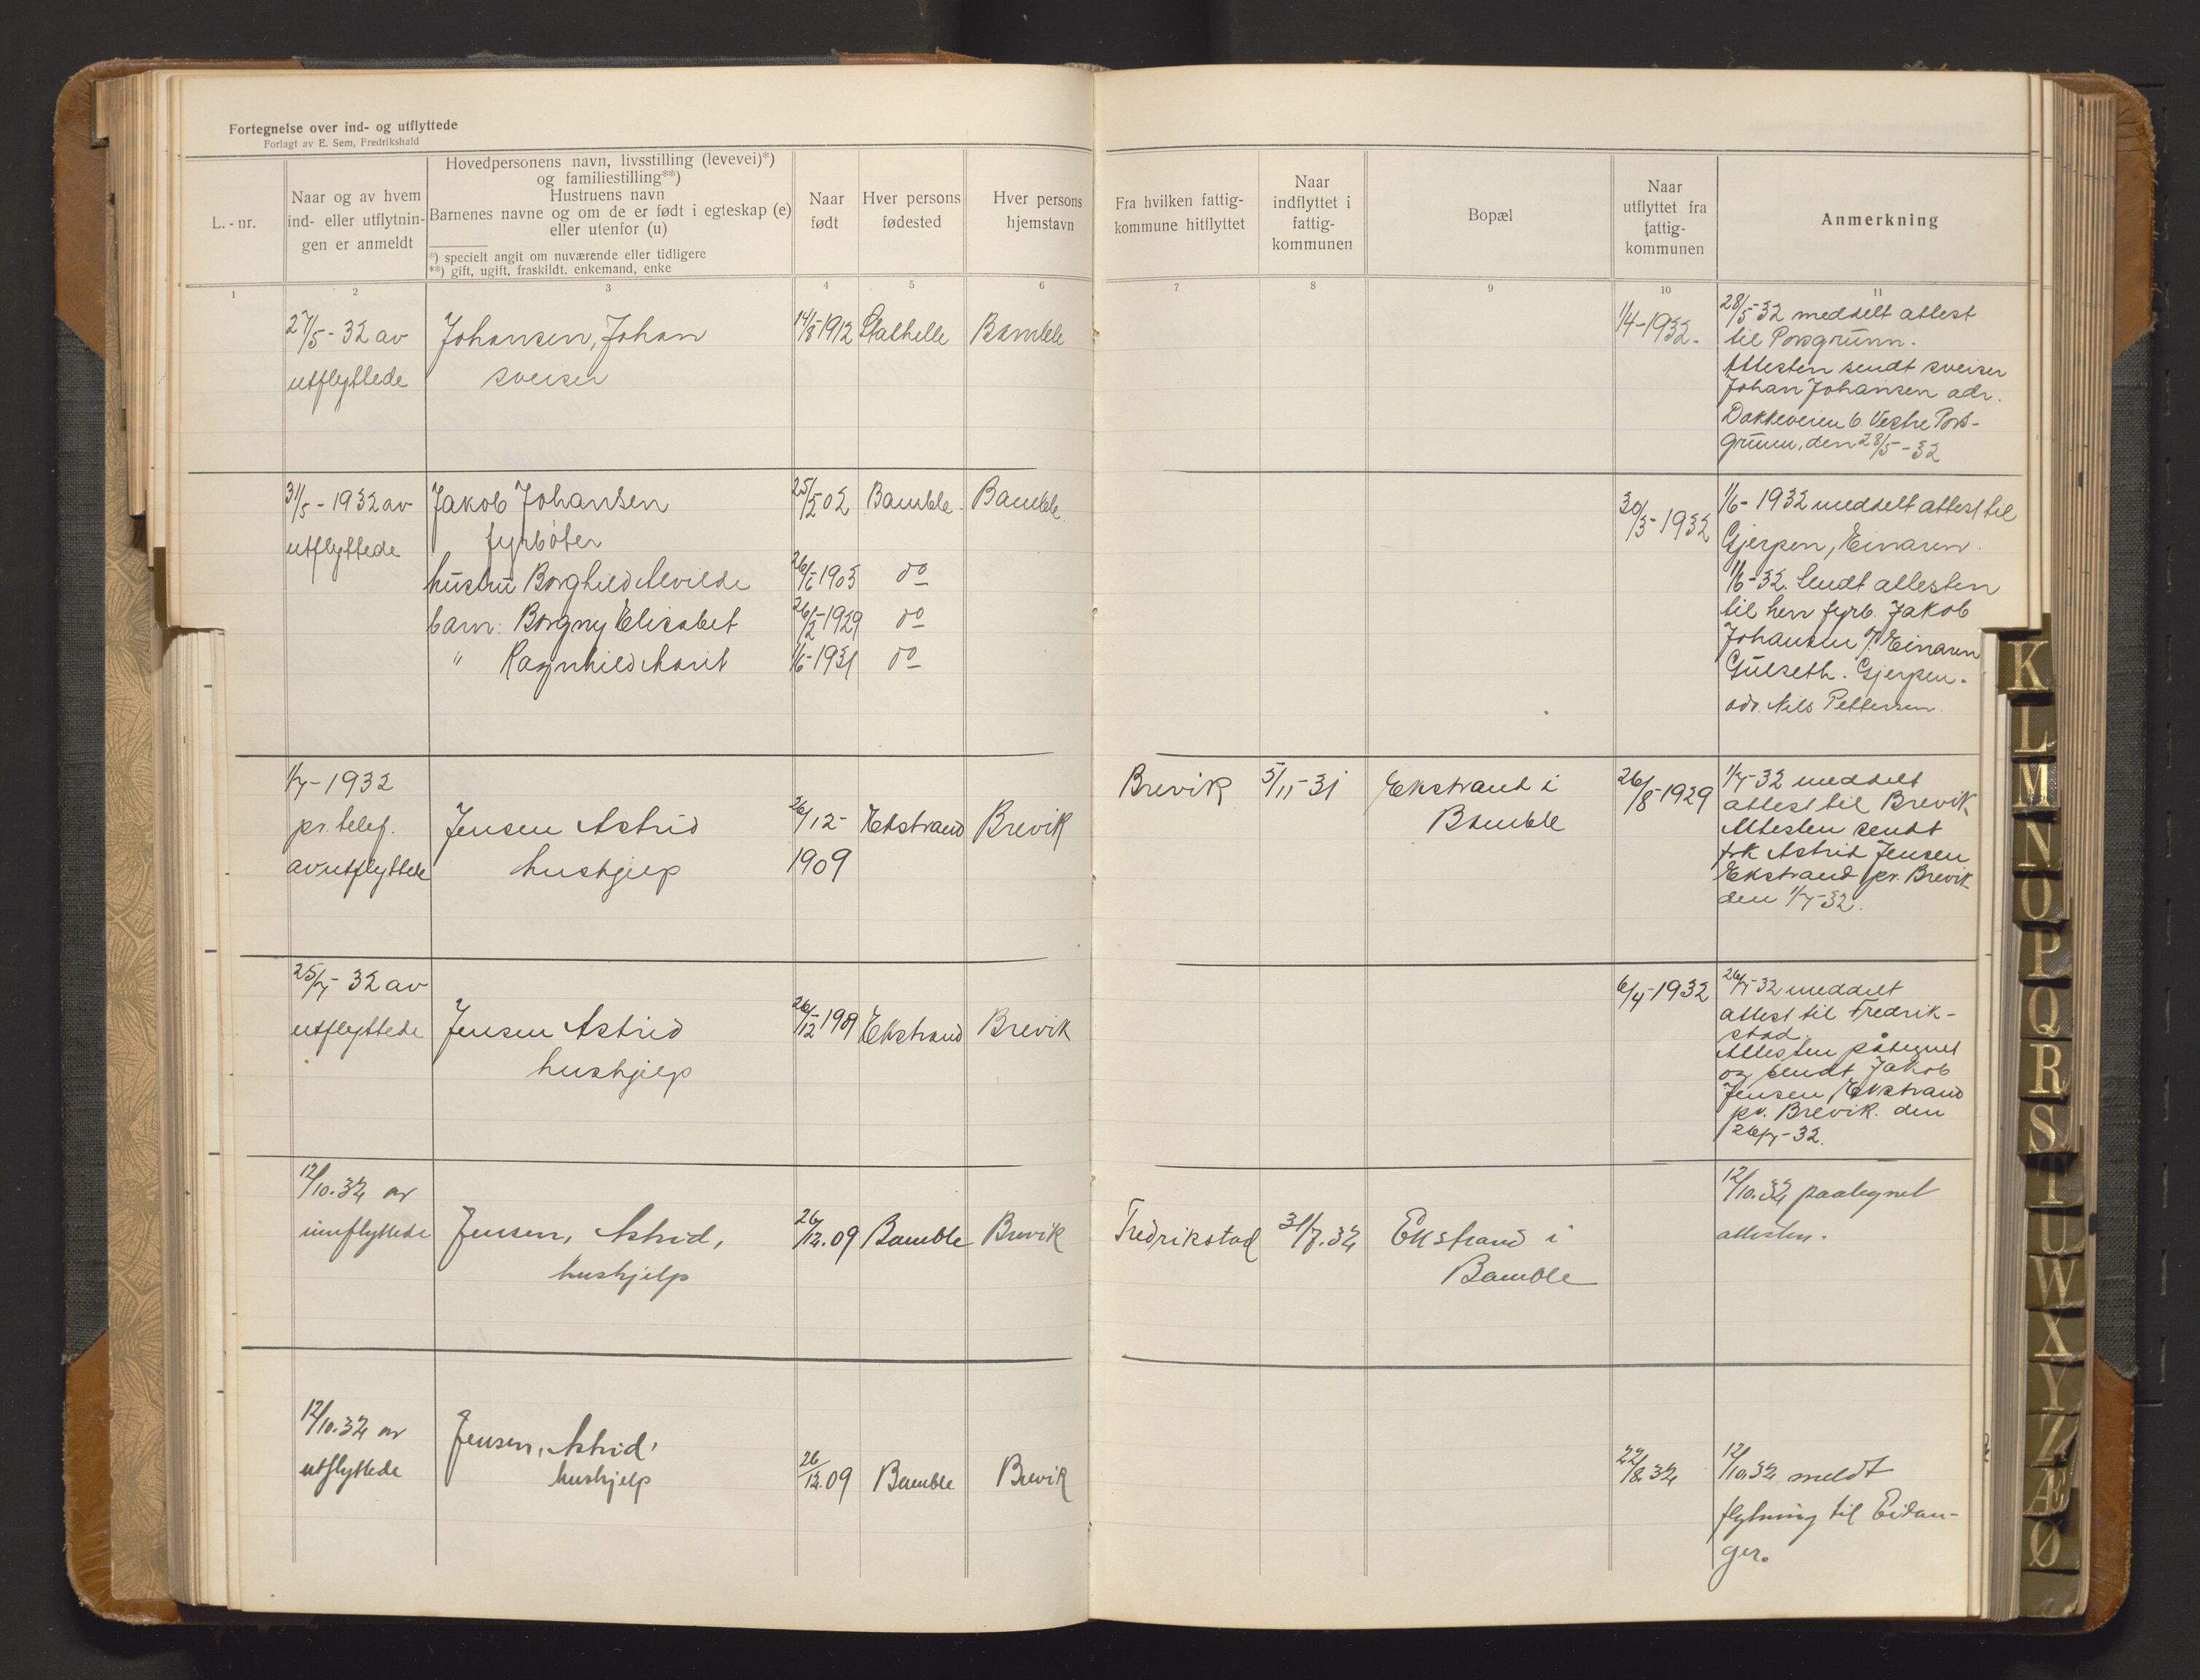 Fortegnelse over ind- og utflyttede
Forlagt av E. Sem, Fredrikshald
L.-nr.
Naar og av hvem
ind- eller utflytnin-
gen er anmeldt
Hovedpersonens navn, livsstilling (levevei)*)
og familiestilling**)
Hustruens navn
Barnenes navne og om de er født i egteskap (e)
eller utenfor (u)
*) specielt angit om nuværende eller tidligere
**) gift, ugift, fraskildt, enkemand, enke
Naar
født
Hver persons
fødested
Hver persons
hjemstavn
Fra hvilken fattig-
kommune hitflyttet
Naar
indflyttet i
fattig-
kommunen
Bopæl
Naar
utflyttet fra
fattig-
kommunen
Anmerkning
1 2 3 4 5 6 7 8 9 10 11
27/5-32 av
utflyttede
Johansen, Johan
sveiser
14/8-1912
Stathelle
Bamble
1/4-1932.
28/5-32 meddelt attest
til Porsgrunn.
Attesten sendt sveiser
Johan Johansen adr.
Dokkeveien 6 Vestre Pors-
grunn, den 28/5-32
31/5-1932 av
utflyttede
Jakob Johansen
fyrbøter
hustru Borghild Alvilde
barn: Borgny Elisabet
" Ragnhild Marit
25/5 02
26/6-1903
26/2-1929
1/6-1931
Bamble
do
do
do
Bamble
30/3-1932
1/6-1932 meddelt attest til
Gjerpen, Einaren.
1/6-32. Sendt attesten
til herr fyrb. Jakob
Johansen Einaren
Gulseth. Gjerpen.
adr. Nils Pettersen.
1/7-1932
pr. telef.
av utflyttede
Jensen Astrid
hushjelp
26/12-
1909
Ekstrand
Brevik
Brevik
5/11-31
Ekstrand i
Bamble
26/8-1929
1/7-32 meddelt
attest til Brevik
Attesten sendt
frk Astrid Jensen
Ekstrand pr. Brevik
den 1/7-32.
25/7-32 av
utflyttede
Jensen Astrid
hushjelp
26/12-1909
Ekstrand
Brevik
6/4-1932
26/7-32 meddelt
attest til Fredrik-
stad.
Attesten påtegnet
og sendt Jakob
Jensen, Ekstrand
pr. Brevik. den
26/7-32.
12/10.32 av
innflyttede
Jensen, Astrid,
hushjelp
26/12.09
Bamble
Brevik
Fredrikstad
31/7.32
Ekstrand i
Bamble
12/10.32 paategnet
attesten.
12/10.32 av
utflyttede
Jensen, Astrid,
hushjelp
26/12.09
Bamble
Brevik
22/8.32
12/10.32 meldt
flytning til Eidan-
ger.
K
L
M
N
O
P
Q
R
S
T
U
W
X
Y
Z
Æ
Ø